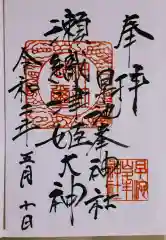 奉拝
早池峯神社
瀬織津姫大神
令和三年
五月十日